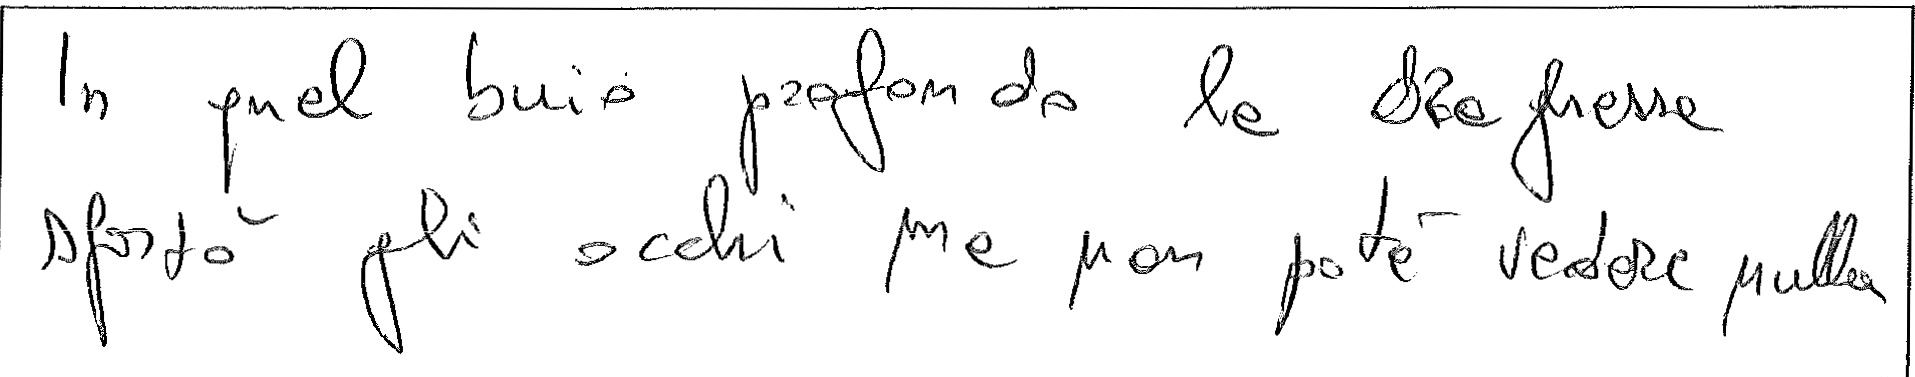 In quel buio profondo la draghessa
spostò gli occhi ma non potè vedere nulla